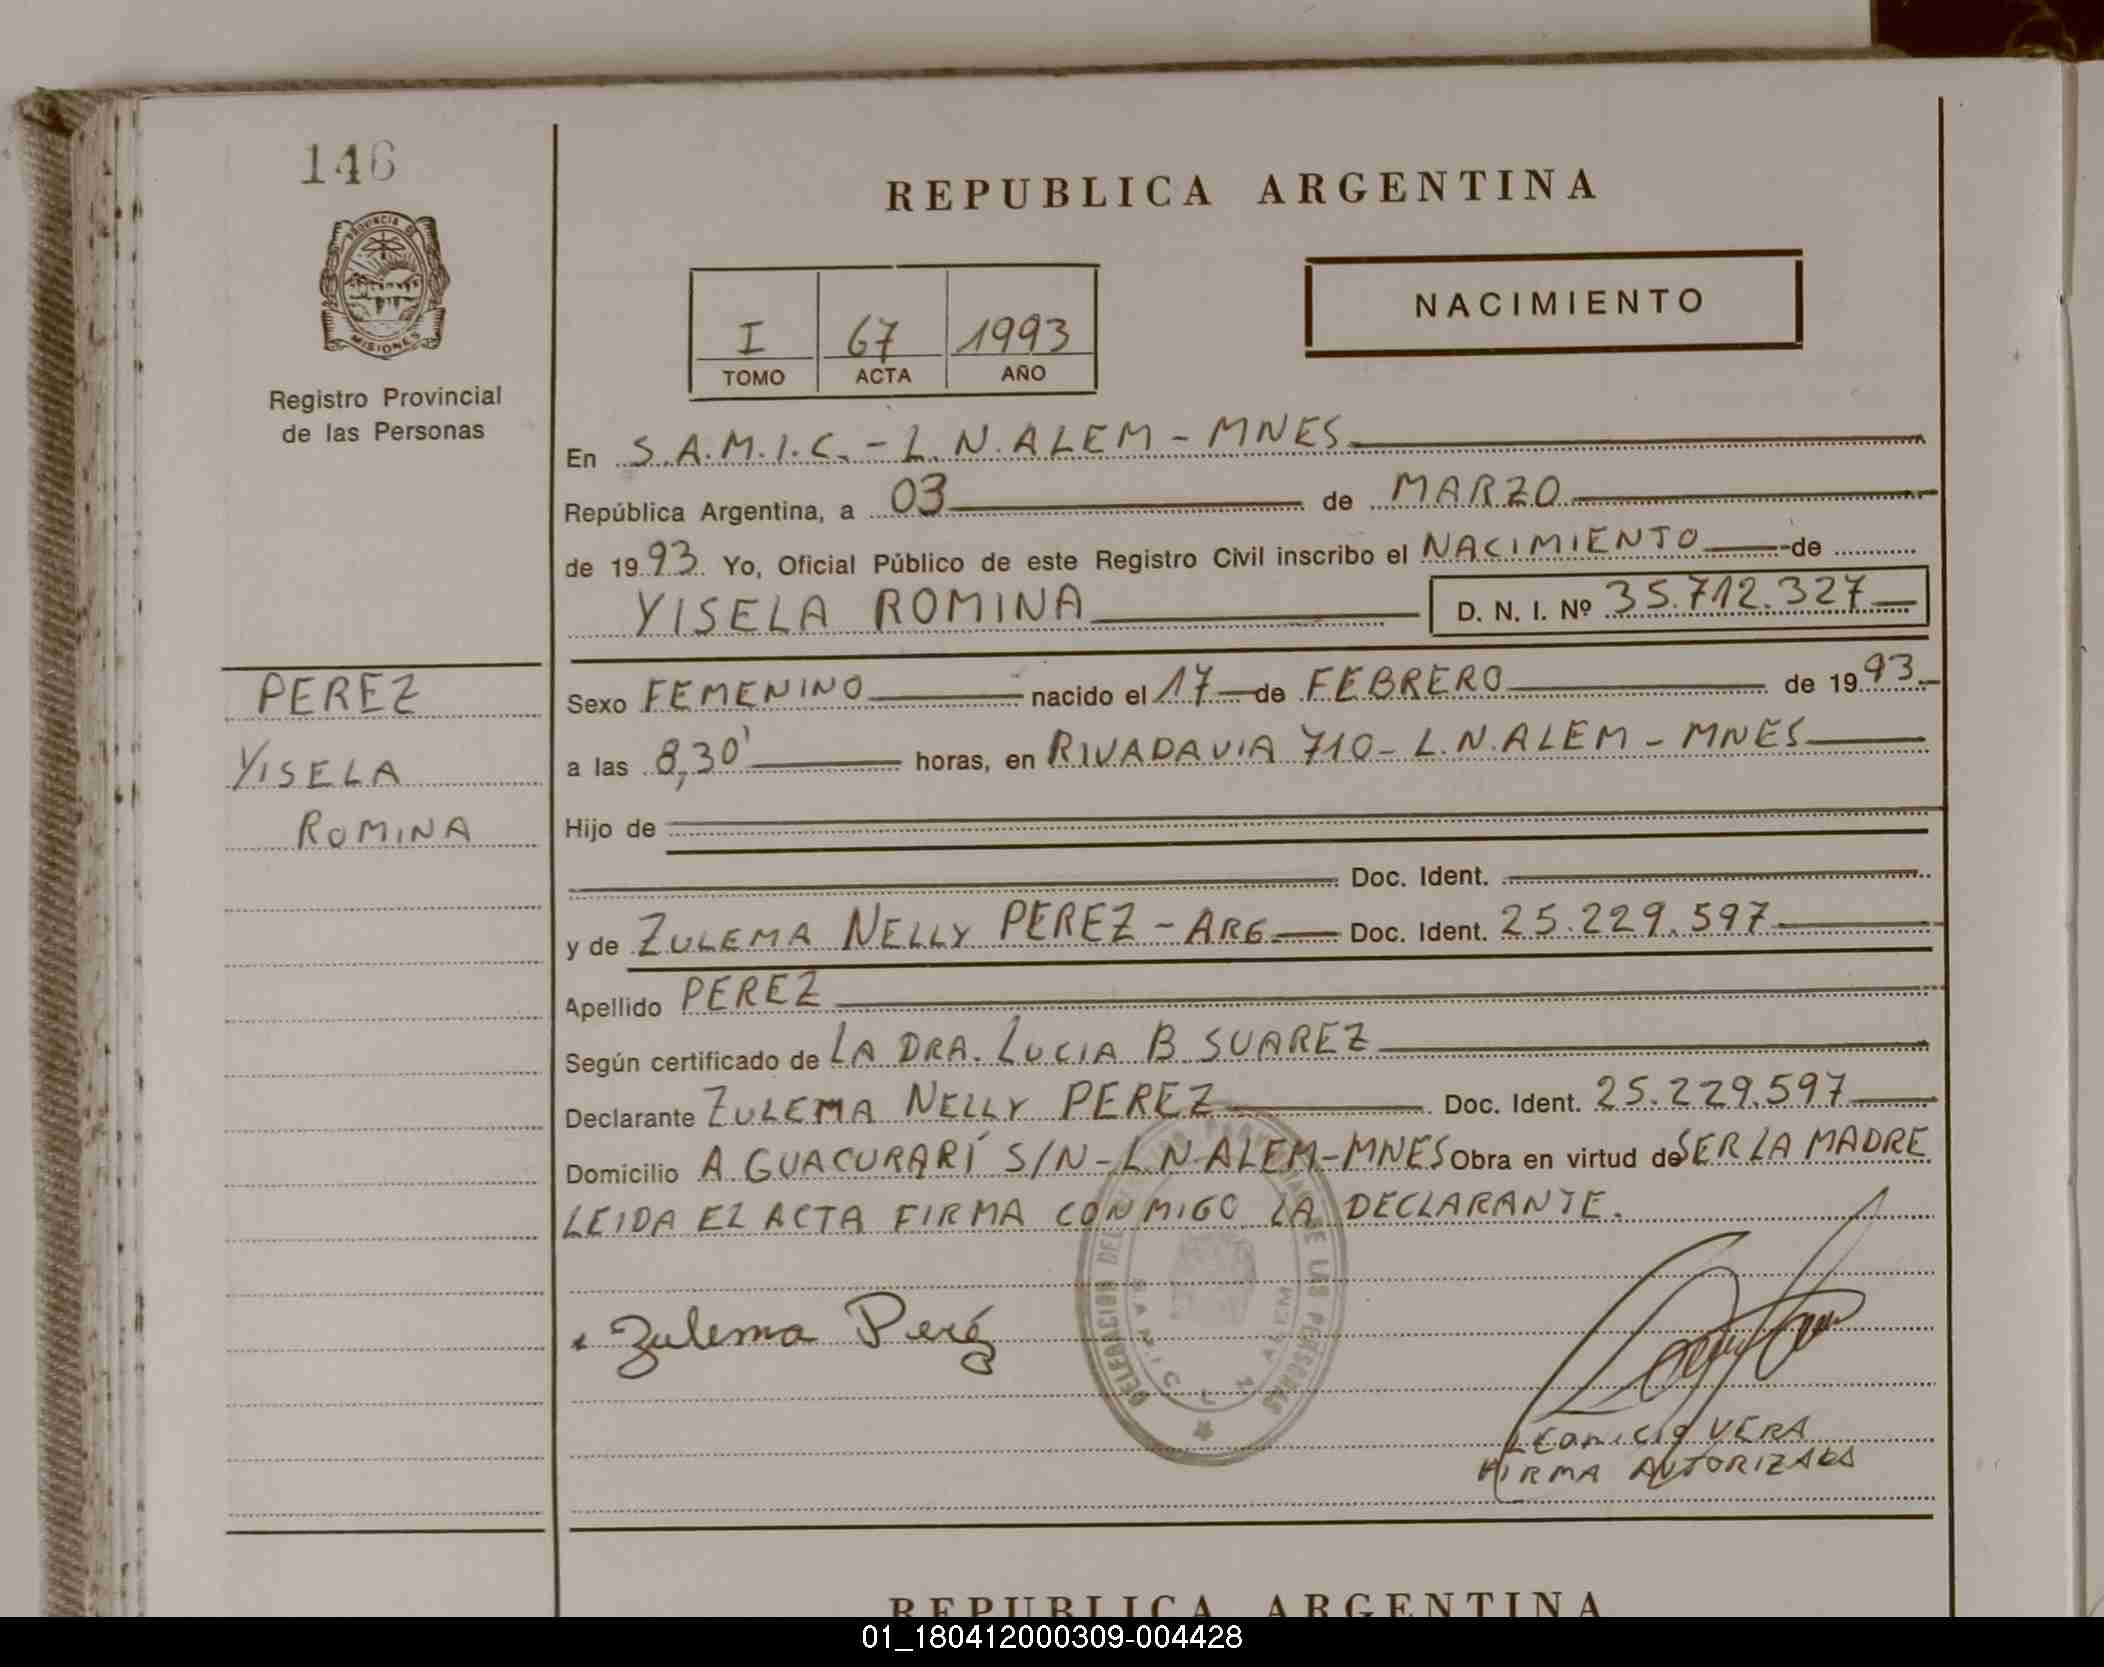 146
REPUBLICA ARGENTINA
PROVINCIA DE
MISIONES
Registro Provincial
de las Personas
I 67 1993
TOMO ACTA AÑO
NACIMIENTO
En S.A.M.I.C. - L.N. ALEM - MNES
República Argentina, a 03 de MARZO
de 1993 Yo, Oficial Público de este Registro Civil inscribo el NACIMIENTO de
YISELA ROMINA D. N. I. Nº 35.712.327
PEREZ
YISELA
ROMINA
Sexo FEMENINO nacido el 17 de FEBRERO de 1993
a las 8,30' horas, en RIVADAVIA 710 - L.N. ALEM - MNES
Hijo de
Doc. Ident.
y de ZULEMA NELLY PEREZ - ARG Doc. Ident. 25.229.597
Apellido PEREZ
Según certificado de LA DRA. LUCIA B SUAREZ
Declarante ZULEMA NELLY PEREZ Doc. Ident. 25.229.597
Domicilio A GUACURARÍ S/N - L.N ALEM - MNES Obra en virtud de SER LA MADRE
LEIDA EL ACTA FIRMA CONMIGO LA DECLARANTE.
Zulema Peréz
DELEGACION DEL DE LAS PERSONAS
ALEM
VERA
FIRMA AUTORIZADA
REPUBLICA ARGENTINA
01_180412000309-004428